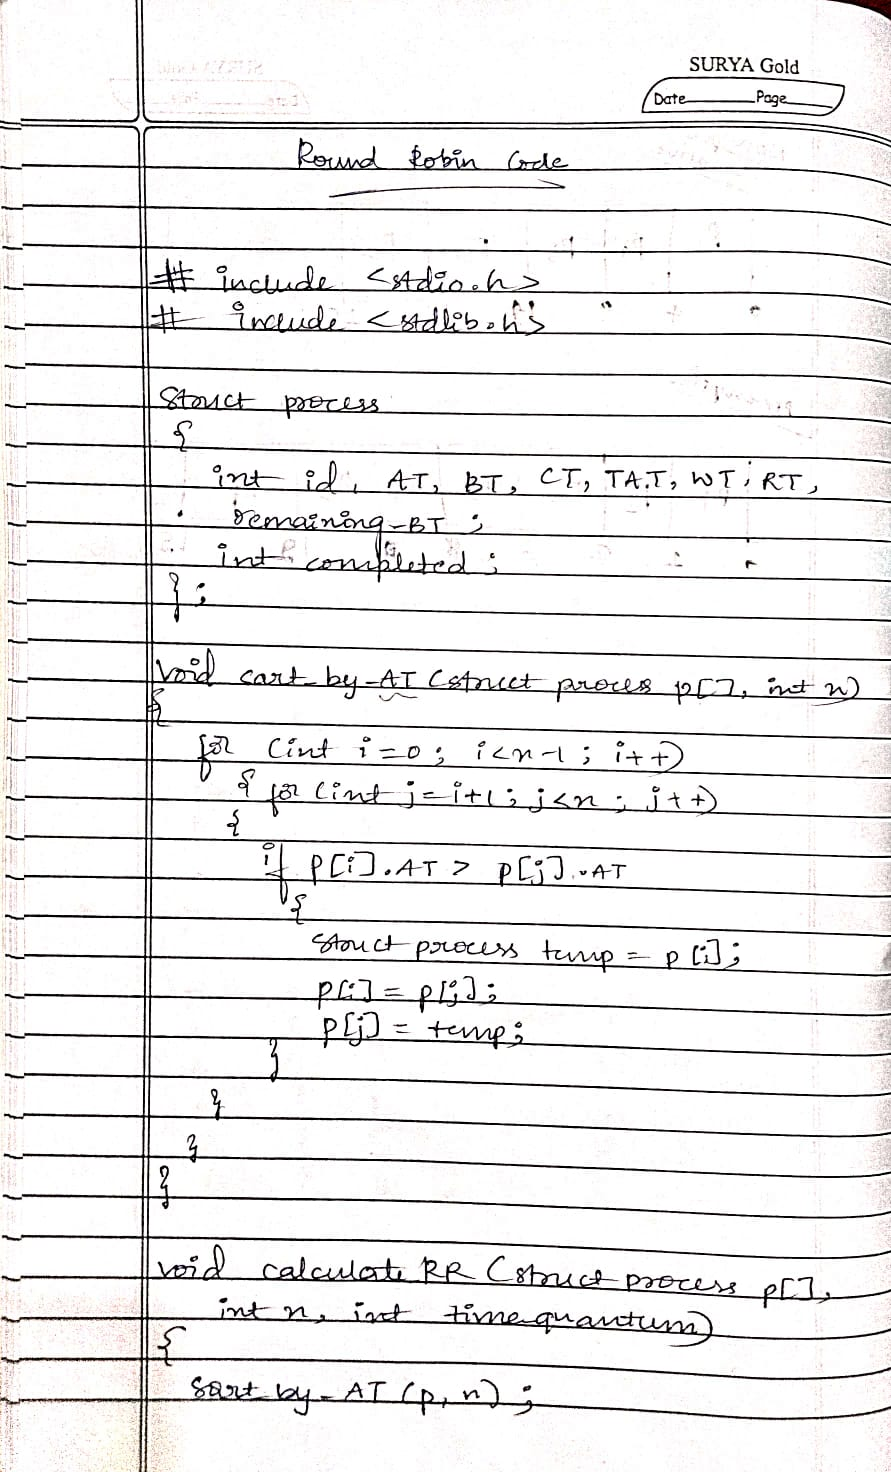 SURYA Gold
Date Page
Round Robin Code
# include <stdio.h>
# include <stdlib.h>
struct process
{
int id, AT, BT, CT, TAT, WT, RT,
remaining_BT ;
int completed ;
} ;
void sart_by_AT (struct process p[], int n)
{
for (int i=0 ; i<n-1 ; i++)
{ for (int j=i+1 ; j<n ; j++)
{
if p[i].AT > p[j].AT
{
struct process temp = p[i] ;
p[i] = p[j] ;
p[j] = temp ;
}
}
}
}
void calculate RR (struct process p[],
int n, int time quantum)
{
sart by_AT (p, n) ;